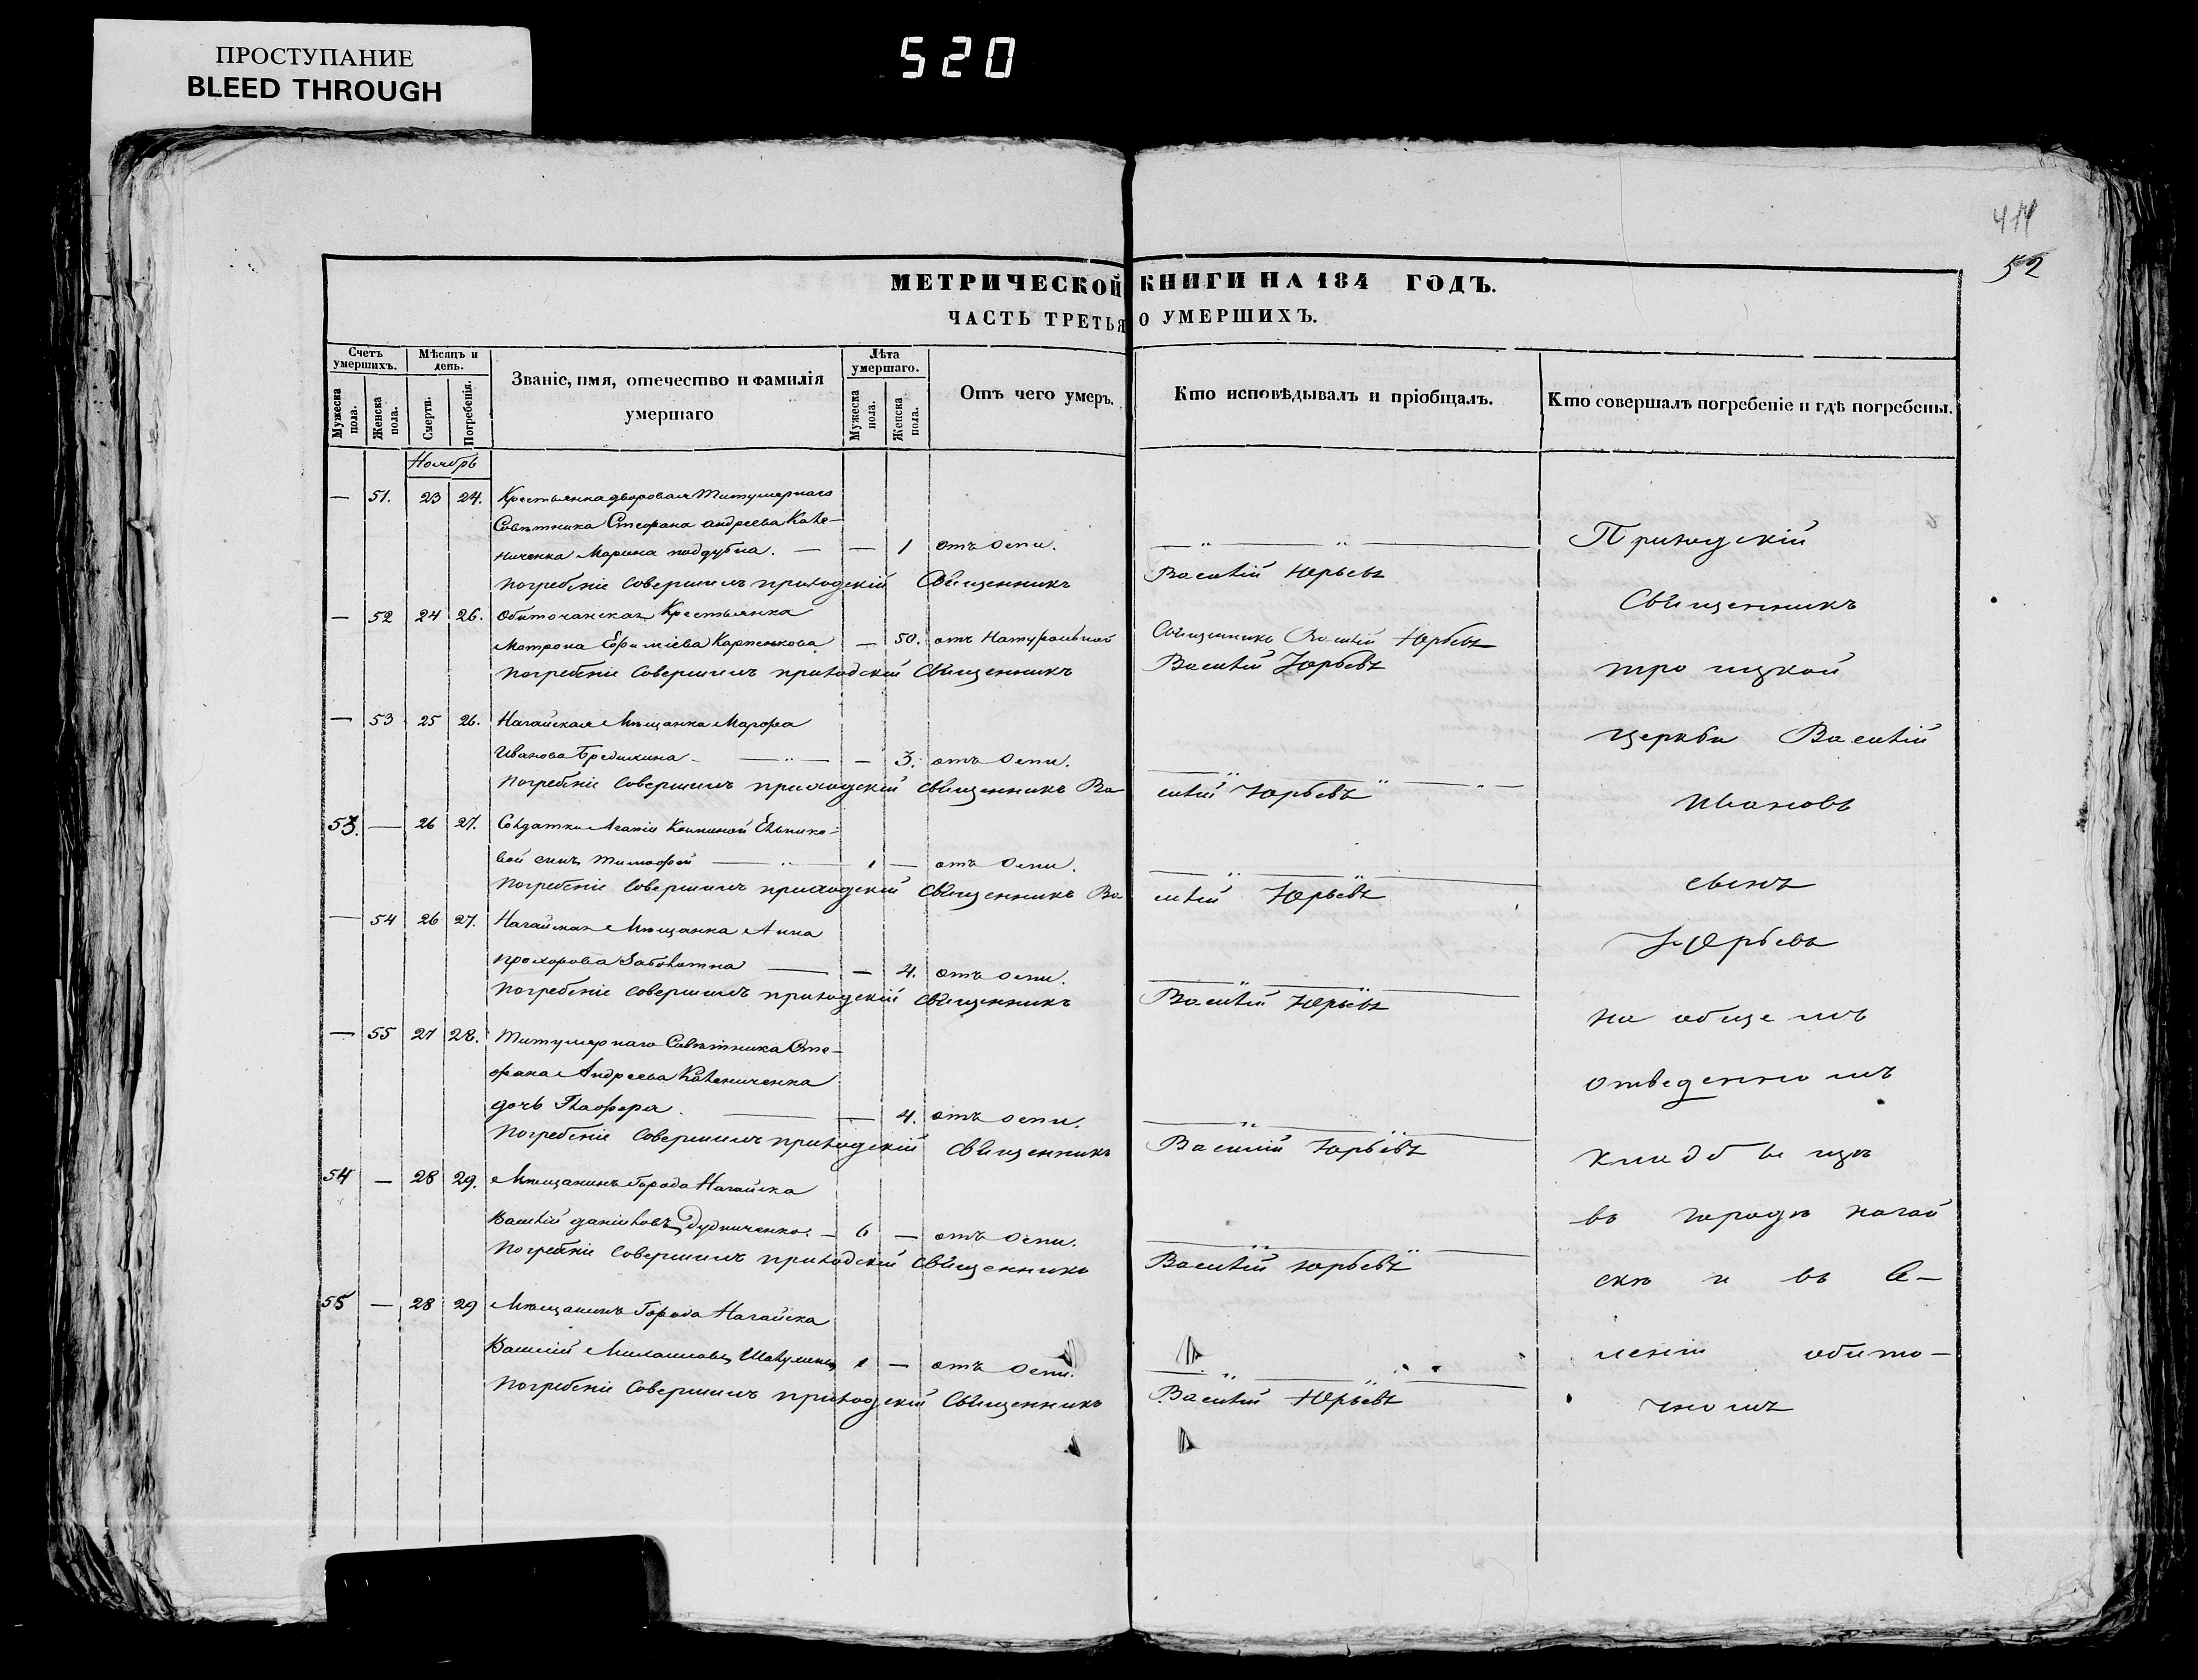 ПРОСТУПАНИЕ
BLEED THROUGH
520
414
52
МЕТРИЧЕСКОЙ КНИГИ НА 184 ГОДЪ.
ЧАСТЬ ТРЕТЬЯ О УМЕРШИХЪ.
Счетъ умершихъ.
Мужеска пола.
Женска пола.
Мѣсяцъ и день.
Смерти.
Погребенія.
Званіе, имя, отечество и фамилія
умершаго
Лѣта умершаго.
Мужеска пола.
Женска пола.
Отъ чего умеръ.
Кто исповѣдывалъ и пріобщалъ.
Кто совершалъ погребеніе и гдѣ погребены.
Ноябрь
— 51. 23 24. Крестьянка дворовая Титулярнаго
Совѣтника Стефана Андреева Кале-
ниченка Марина поддубна. — — 1 отъ оспи. — " — " —
Погребеніе совершилъ приходскій Священникъ Василій Юрьевъ
— 52 24 26. Обиточанская Крестьянка
Матрона Ефимiева Карпенкова — 50. отъ Натуральной Священникъ Василій Юрьевъ
Погребеніе совершилъ приходскій Священникъ Василій Юрьевъ
— 53 25 26. Нагайская Мѣщанка Марфа
Иванова — " — — 3. отъ оспи. — " — " — " —
Погребеніе совершилъ приходскій священникъ Ва силій Юрьевъ
53. — 26 27. Солдатки Агапіи
вой сынъ Тимофей — " — 1 — отъ оспи. — " — " —
Погребеніе совершилъ приходскій священникъ Ва силій Юрьевъ
— 54 26 27. Нагайская Мѣщанка Анна
Прохорова Заболотна — — 4. отъ оспи. — " — " —
Погребеніе совершилъ приходскій священникъ Василій Юрьевъ
— 55 27 28. Титулярнаго Совѣтника Сте-
фана Андреева Калениченка
дочь Глафера. — — 4. отъ оспи. — " — " —
Погребеніе совершилъ приходскій священникъ Василій Юрьевъ
54 — 28 29. Мѣщанинъ Города Нагайска
Василій Даніиловъ Дудниченко. — 6 — отъ оспи. — " — " —
Погребеніе совершилъ приходскій священникъ Василій Юрьевъ
55 — 28 29 Мѣщанинъ Города Нагайска
Василій 1 — отъ оспи. — " — " —
Погребеніе совершилъ приходскій Священникъ Василій Юрьевъ
Приходскій
Священникъ
троицкой
церкви Василій
Ивановъ
сынъ
Юрьевъ
на общемъ
отведенномъ
кладбѣищѣ
въ городѣ нагай
скѣ и въ се-
леніи обито-
чномъ